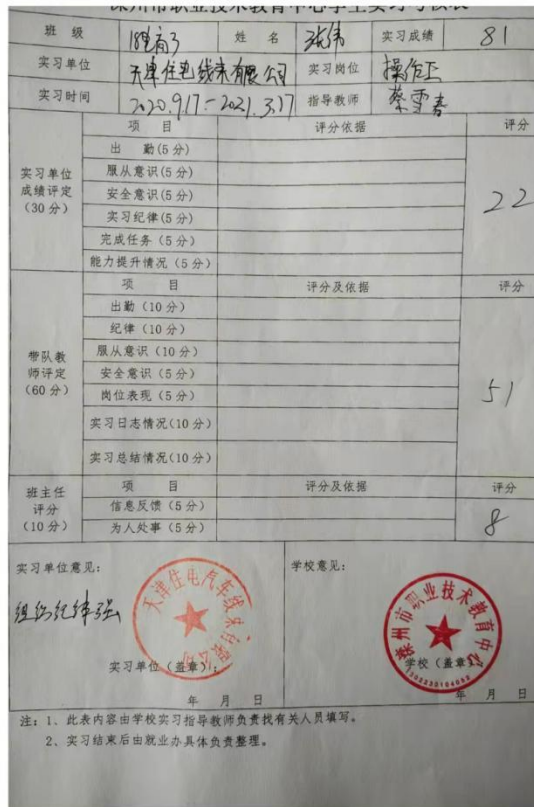 滦州市职业技术教育中心学生实习考核表
班 级 姓 名 张伟 实习成绩 81
实习单位 天津住电线束有限公司 实习岗位 操作工
实习时间 2020.9.17-2021.3.17 指导教师 蔡雪春
项 目 评分依据 评分
实习单位成绩评定(30分)
出 勤(5分)
服从意识(5分)
安全意识(5分)
实习纪律(5分)
完成任务(5分)
能力提升情况(5分)
22
项 目 评分及依据 评分
带队教师评定(60分)
出勤(10分)
纪律(10分)
服从意识(10分)
安全意识(5分)
岗位表现(5分)
实习日志情况(10分)
实习总结情况(10分)
51
项 目 评分及依据 评分
班主任评分(10分)
信息反馈(5分)
为人处事(5分)
8
实习单位意见: 学校意见:
组织纪律强
天津住电汽车线束有限公司
滦州市职业技术教育中心
实习单位(盖章): 学校(盖章)
年 月 日 年 月 日
注:1、此表内容由学校实习指导教师负责找有关人员填写。
2、实习结束后由就业办具体负责整理。